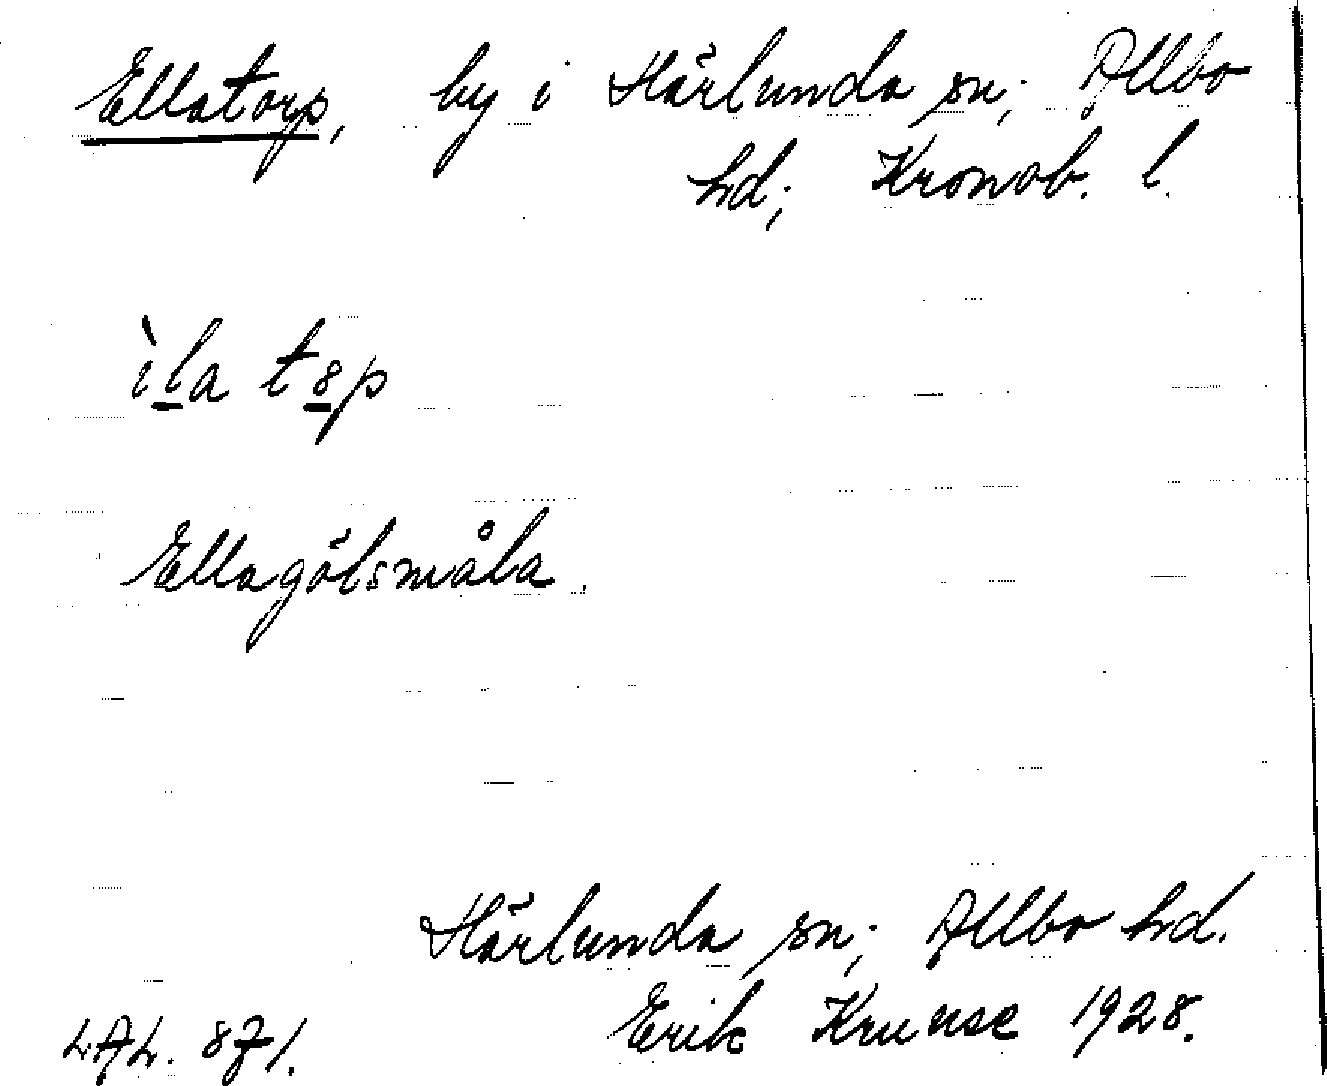 Ellatorp, by i Härlunda sn; Allbo
hd; Kronob. l.
ìl̲a t8̲p
Ellagölsmåla.
Härlunda sn; Allbo hd.
LAL. 871. Erik Kruuse 1928.